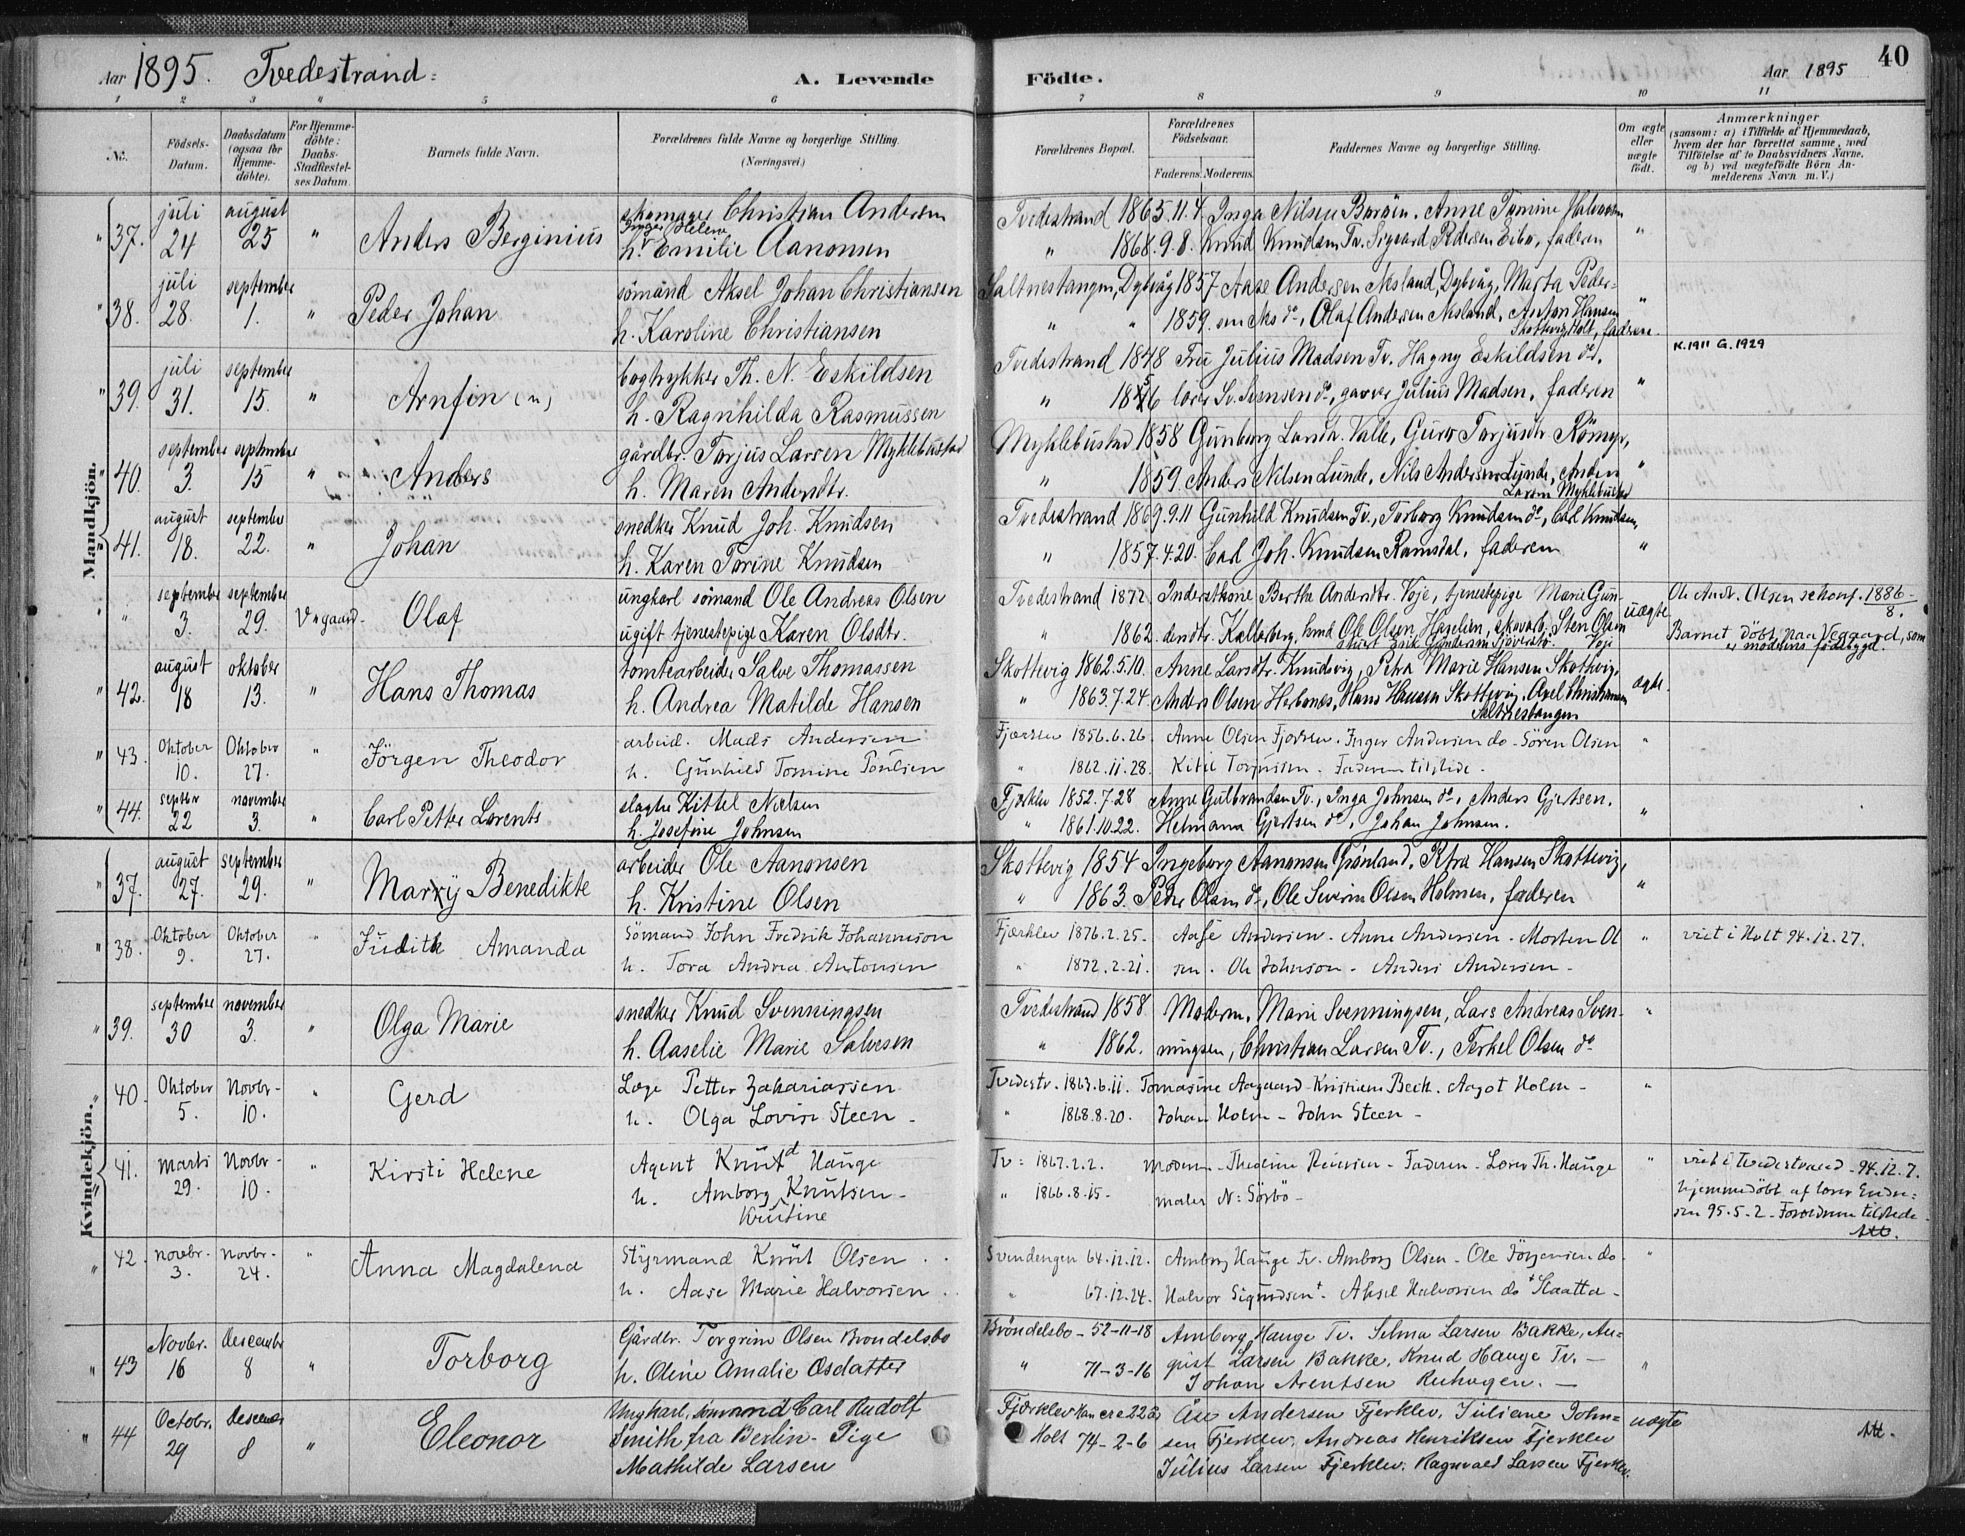 Aar 1895. Tvedestrand:
A. Levende Fødte.
Aar 1895
40
1 2 3 4 5 6 7 8 9 10 11
No.
Fødsels-Datum.
Daabsdatum (ogsaa for Hjemme-døbte).
For Hjemme-døbte: Daabs-Stadfæstelses Datum.
Barnets fulde Navn.
Forældrenes fulde Navne og borgerlige Stilling (Næringsvei.)
Forældrenes Bopæl.
Forældrenes Fødselsaar.
Faderens. Moderens.
Faddernes Navne og borgerlige Stilling.
Om ægte eller uægte født.
Anmærkninger (saasom: a) i Tilfælde af Hjemmedaab, hvem der har forrettet samme, med Tilføielse af to Daabsvidners Navne, og b) ved uægtefødte Børn Anmelderens Navn m. V.)
Mandkjön.
37. juli 24 august 25 " Anders Berginius
skomager Christian Andersen
Inger Helene
h. Emilie Aanonsen
Tvedestrand 1865.11.4. Inga Nilsen Borøin. Anne Tomine Halvorsen
" 1868.9.8. Knud Knudsen Tv. Sigvard Pedersen Eibo, faderen "
38. juli 28. september 1. " Peder Johan
sömand Aksel Johan Christiansen
h. Karoline Christiansen
Saltnestangen, Dybvåg 1857 Aase Andersen Nesland, Dybvåg, Marta Peder-
" " 1859. sen Næs do, Olaf Andersen Nesland, Anton Hansen
Skottevig, Holt, faderen. "
39. juli 31. september 15. " Arnfin (n)
bogtrykker Th. N. Eskildsen
h. Ragnhilda Rasmussen
Tvedestrand 1848 Fru Julius Madsen Tv. Hagny Eskildsen do.
" 1856 lærer Sv. Svensen do, garver Julius Madsen, faderen "
K. 1911 G. 1929
40. september 3. september 15 " Anders
gårdbr. Torjus Larsen Myklebustad
h. Maren Andersdtr.
Myklebustad 1858 Gunborg Larsdtr. Valle, Guro Torjusdtr. Römyr,
" 1859. Anders Nilsen Lunde, Nils Andersen Lunde, Anders
Larsen Myklebustad "
41. august 18. september 22. " Johan
snedker Knud Joh. Knudsen
h. Karen Torine Knudsen
Tvedestrand 1869.9.11 Gunhild Knudsen Tv., Torborg Knudsen do, Carl Knudsen,
" 1857.4.20. Carl Joh. Knudsen Ramsdal, faderen "
" september 3. september 29. Vegaard Olaf
ungkarl sömand Ole Andreas Olsen
ugift tjenestepige Karen Olsdtr.
Tvedestrand 1872. Inderstkone Bertha Andersdtr. Voje, tjenestepige Marie Gun-
" 1862. dersdtr. Kalleberg, smed Ole Olsen Haselien, skovarb. Sten Olsen
Voje
uægte
Ole Andr. Olsen se konf. 1886 8.
Barnet döbt paa Vegaard, som er moderens fødebygd.
42. august 18 oktober 13. " Hans Thomas
tomtearbeider Salve Thomassen
h. Andrea Matilde Hansen
Skottevig 1862.5.10. Anne Larsdtr. Knudsvig, Petra Marie Hansen Skottevig,
" 1863.7.24. Anders Olsen Herbenes, Hans Hansen Skottevig, Axel Christiansen
Saltnestangen
ægte.
43. Oktober 10. Oktober 27. " Jörgen Theodor
arbeid. Mads Andersen
h. Gunhild Tomine Poulsen
Fjærklev 1856.6.26. Anne Olsen Fjærklev. Inger Andersen do - Sören Olsen
" 1862.11.28. Kitil Torjussen. Faderen tilstede. "
44. septbr 22 november 3. " Carl Petter Lorents
slagter Kittel Nielsen
h. Josefine Johnsen
Fjærklev 1852.7.28 Anne Gulbrandsen Tv., Inga Johnsen do, Anders Gjertsen.
" 1861.10.22. Helmana Gjertsen do, Johan Johnsen. "
Kvindekjön.
37. august 27. september 29. " Marry Benedikte
arbeider Ole Aanonsen
h. Kristine Olsen
Skottevig 1854 Ingeborg Aanonsen Grønland, Petra Hansen Skottevig,
" 1863. Peder Olsen do, Ole Severin Olsen Holmen, faderen "
38. Oktober 9. Oktober 27. " Judith Amanda
Sömand John Fredrik Johannesson
h. Tora Andrea Antonsen
Fjærklev 1876.2.25. Aase Andersen. Anne Andersen - Morten Ol
" 1872.2.21. sen. Ole Johnson - Anders Andersen - "
viet i Holt 94.12.27.
39. september 30 november 3. " Olga Marie
snedker Knud Svenningsen
h. Aaselie Marie Salvesen
Tvedestrand 1858. Moderen, Marie Svenningsen, Lars Andreas Sven-
" 1862. ningsen, Christian Larsen Tv., Terkel Olsen do "
40. Oktober 5. Novbr- 10. " Gerd
Læge Petter Zakariassen
h. Olga Lovise Steen -
Tvedestr. 1863.6.11. Tomasine Aagaard - Kristiane Beck. Aagot Holm -
" 1868.8.20. Johan Holm - John Steen - "
41. Marts 29. Novbr- 10. " Kirsti Helene
Agent Knutd Hauge
h. Amborg Knutsen -
Kristine
Tv: 1867.2.2. Moderen - Thedine Reiersen - Faderen - Lærer Th. Hauge
" 1866.8.15- maler N: Sörbö - "
viet i Tvedestrand - 94.12.7.
hjemmedöbt af lærer Endre-
sen 95.5.2 - Forældrene tilstede.
Att.
42. novbr. 3. Novbr- 24. " Anna Magdalena
Styrmand Knut Olsen
h. Aase Marie Halvorsen
Svendengen 64.12.12. Amborg Hauge Tv. Amborg Olsen - Ole Jörgensen do -
" 67.12.24. Halvor Sigurdsen + Aksel Halvorsen do + Slaatta - "
43 Novbr. 16 Desember 8 " Torborg
Gårdbr. Torgrim Olsen Brøndelsbo
h. Oline Amalie Osdatter
Brøndelsbo - 52-11-18 Amborg Hauge Tv. Selma Larsen Bakke, Au=
" 71-3-16 gust Larsen Bakke, Knud Hauge Tv. -
Johan Arentsen Ruhagen. - "
44 Octobr. 29 Desember 8 " Eleonor
Ungkarl, sömand Carl Rudolf
Smith fra Berlin - Pige
Mathilde Larsen
Fjærklev Han cra 22 år Åse Andersen Fjerklev, Juliane John=
Holt 74-2-6 sen Fjerklev, Andreas Henriksen Fjerklev
Julius Larsen Fjerklev. Ragnvald Larsen Fjerklev.
uægte
Att.